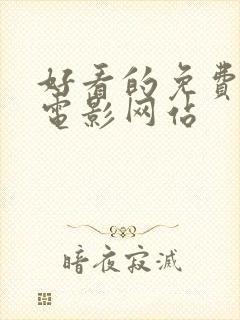 好看的免費
電影网佔
暗夜寂滅